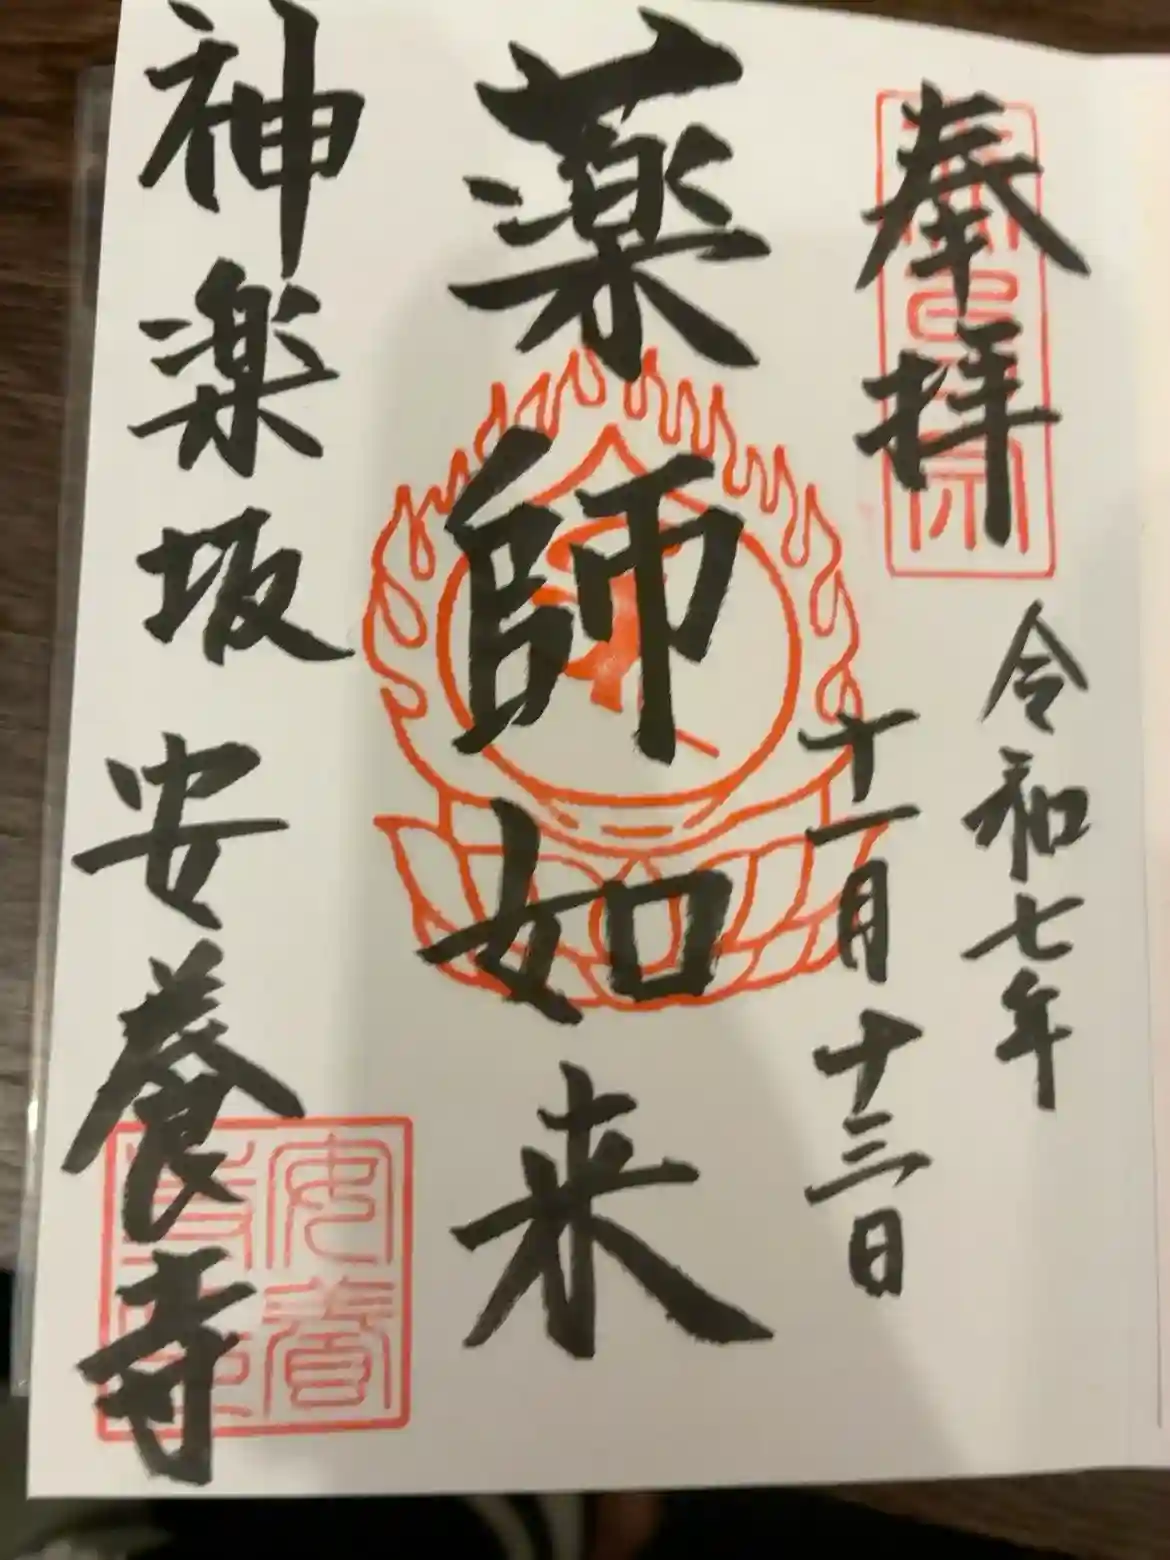 奉拝
令和七年
十一月十三日
薬師如来
神楽坂 安養寺
安養